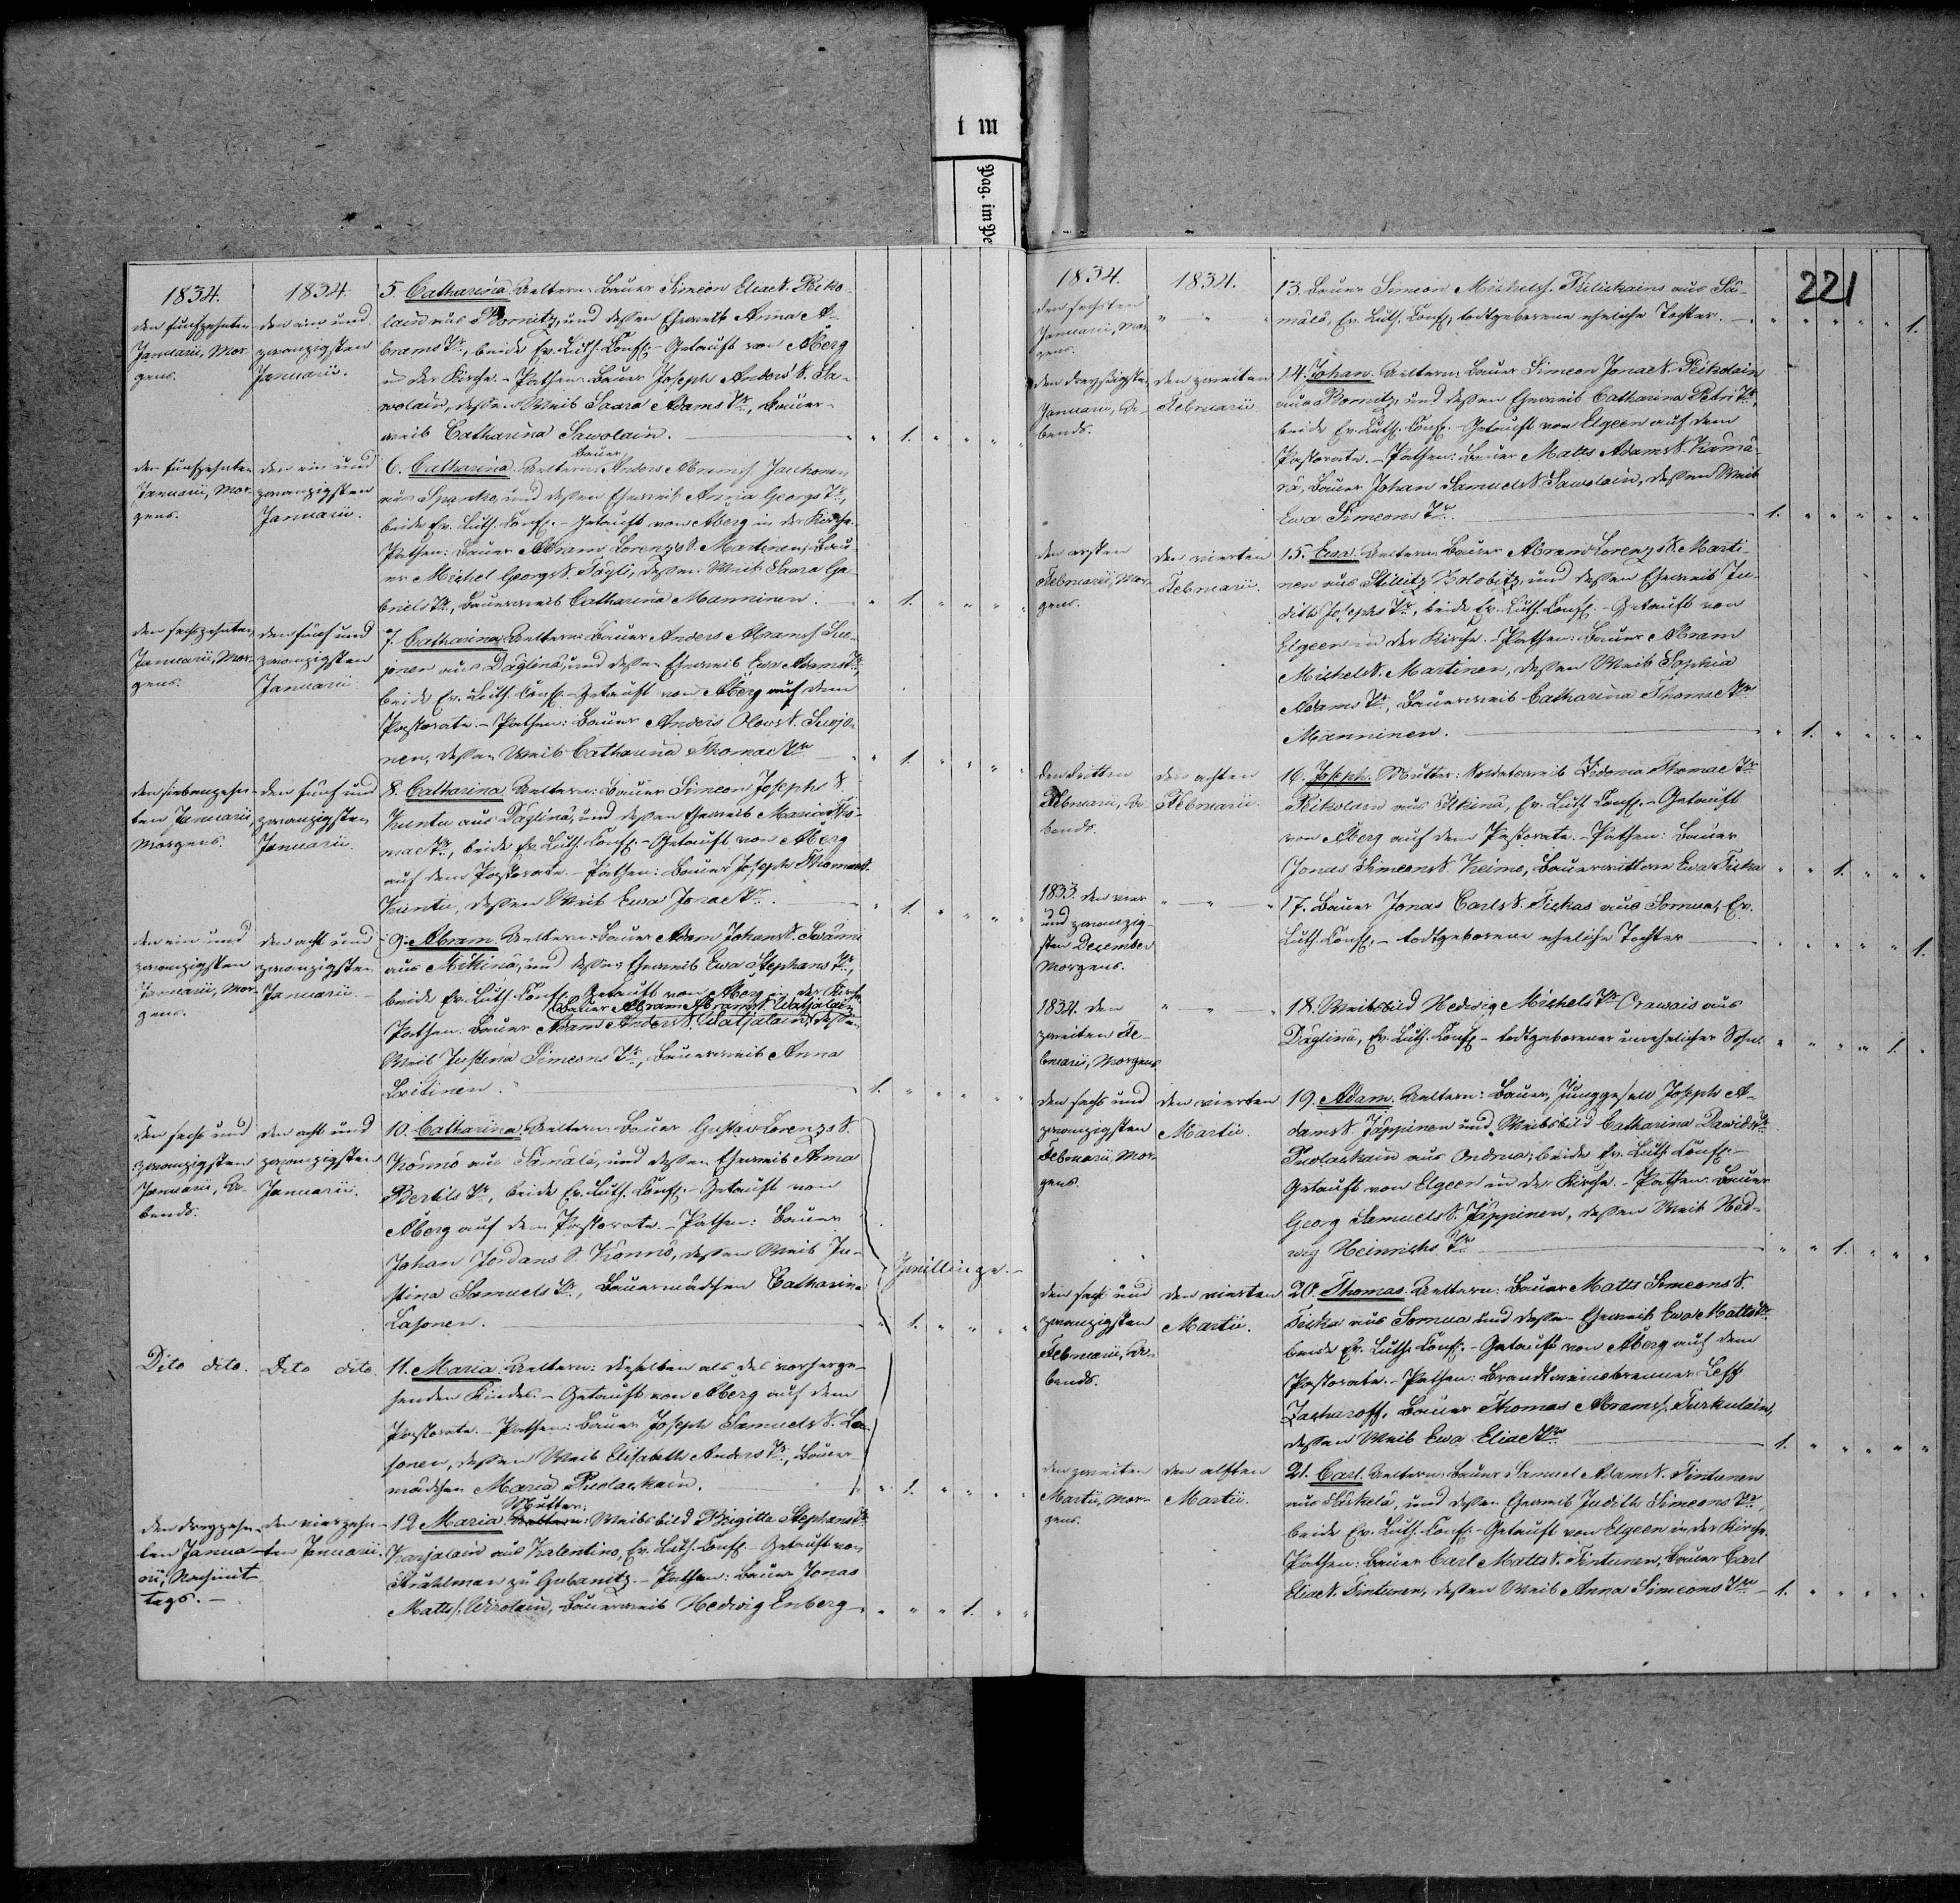 t m
Pag. im Pe
1834.
1834.
den funfzehnten
Januarii, Mor-
gens.
den ein und
zwanzigsten
Januarii.
5. Catharina. Aeltern: Bauer Simeon Eliae S. Piko-
lain aus Bornitz, und dessen Eheweib Anna A-
brams Tr., beide Ev. Luth. Conf. - Getauft von Åberg
in der Kirche. - Pathen: Bauer Joseph Anders S. Sa-
wolain, dessen Weib Saara Adams Tr., Bauer-
weib Catharina Sawolain. 1.
den funfzehnten
Januarii, Mor-
gens.
den ein und
zwanzigsten
Januarii.
Bauer
6. Catharina. Aeltern: Anders Abrams S. Jauhonen
aus Spanko, und dessen Eheweib Anna Georgs Tr.,
beide Ev. Luth. Conf. - Getauft von Åberg in der Kirche.
Pathen: Bauer Abram Lorenzs S. Martinen, Bau-
er Michel Georgs S. Täyli, dessen Weib Saara Ga-
briels Tr., Bauerweib Catharina Manninen. 1.
den sechzehnten
Januarii, Mor-
gens.
den fünf und
zwanzigsten
Januarii
7. Catharina. Aeltern: Bauer Anders Abrams S. Su-
jonen aus Däglinä, und dessen Eheweib Ewa Adams Tr.,
beide Ev. Luth. Conf. - Getauft von Åberg auf dem
Pastorate. - Pathen: Bauer Anders Olavs S. Suojo-
nen, dessen Weib Catharina Thomae Tr. 1.
den siebenzehn-
ten Januarii,
Morgens.
den fünf und
zwanzigsten
Januarii.
8. Catharina. Aeltern: Bauer Simeon Josephs S.
Kuntu aus Däglinä, und dessen Eheweib Maria Tho-
mae Tr., beide Ev. Luth. Conf. - Getauft von Åberg
auf dem Pastorate. - Pathen: Bauer Joseph Thomae S.
Kuntu, dessen Weib Ewa Jonae Tr. 1.
den ein und
zwanzigsten
Januarii, Mor-
gens.
den acht und
zwanzigsten
Januarii.
9. Abram. Aeltern: Bauer Adam Johans S. Swänni
aus Mikinä, und dessen Eheweib Ewa Stephans Tr.,
beide Ev. Luth. Conf. Getauft von Åberg in der Kirche.
Bauer Abram Abrams S. Watjalain
Pathen: Bauer Adam Anders S. Watjalain, dessen
Weib Justina Simeons Tr., Bauerweib Anna
Loitinen. 1.
den sechs und
zwanzigsten
Januarii, A-
bends.
den acht und
zwanzigsten
Januarii.
10. Catharina. Aeltern: Bauer Gustav Lorenzs S.
Könnö aus Sämälä, und dessen Eheweib Anna
Bertils Tr., beide Ev. Luth. Conf. - Getauft von
Åberg auf dem Pastorate. - Pathen: Bauer
Johan Jordans S. Könnö, dessen Weib Ju-
stina Samuels Tr., Bauermädchen Catharina
Lasonen. 1.
Zwillinge. -
Dito dito.
Dito dito
11. Maria. Aeltern: dieselben als des vorherge-
henden Kindes. - Getauft von Åberg auf dem
Pastorate. - Pathen: Bauer Joseph Samuels S. La-
sonen, dessen Weib Elisabeth Anders Tr., Bauer-
mädchen Maria Puolaskain. 1.
den dreyzehn-
ten Janua-
rii, Nachmit-
tags. -
den vierzehn-
ten Januarii.
Mutter:
12. Maria. Aeltern: Weibsbild Brigitta Stephans Tr.
Karjalain aus Kalentino, Ev. Luth. Conf. - Getauft von
Strählman zu Gubanitz. - Pathen: Bauer Jonas
Matts S. Wirolain, Bauerweib Hedwig Enberg 1.
221
1834.
1834.
den sechsten
Januarii, Mor-
gens.
13. Bauer Simeon Michels S. Kiliskains aus Sä-
mälä, Ev. Luth. Conf., todtgeborene eheliche Tochter. 1.
den dreyßigsten
Januarii, A-
bends.
den zweiten
Februarii
14. Johan. Aeltern: Bauer Simeon Jonae S. Pikolain
aus Bornitz, und dessen Eheweib Catharina Petri Tr.,
beide Ev. Luth. Conf. - Getauft von Elgeen auf dem
Pastorate. - Pathen: Bauer Matts Adams S. Kämä-
rä, Bauer Johan Samuels S. Sawolain, dessen Weib
Ewa Simeons Tr. 1.
den ersten
Februarii, Mor-
gens.
den vierten
Februarii.
15. Ewa. Aeltern: Bauer Abram Lorenzs S. Marti-
nen aus Stillitz Holobitz, und dessen Eheweib Ju-
dith Josephs Tr., beide Ev. Luth. Conf. - Getauft von
Elgeen in der Kirche. - Pathen: Bauer Abram
Michels S. Martinen, dessen Weib Sophia
Adams Tr., Bauerweib Catharina Thomae Tr.
Manninen. 1.
den dritten
Februarii, A-
bends.
den achten
Februarii.
16. Joseph. Mutter: Soldatenweib Fedonia Thomae Tr.
Pikolain aus Pikinä, Ev. Luth. Conf. - Getauft
von Åberg auf dem Pastorate. - Pathen: Bauer
Jonas Simeons S. Keimo, Bauerwittwe Ewa Tiska 1.
1833. den vier
und zwanzig-
sten December
Morgens.
17. Bauer Jonas Carls S. Tiskas aus Sornua, Ev.
Luth. Conf., - todtgeborene eheliche Tochter 1.
1834. den
zweiten Fe-
bruarii, Morgens
18. Weibsbild Hedwig Michels Tr. Orawais aus
Däglinä, Ev. Luth. Conf. - todtgeborener unehelicher Sohn. 1.
den sechs und
zwanzigsten
Februarii, Mor-
gens.
den vierten
Martii.
19. Adam. Aeltern: Bauer, Junggesell Joseph A-
dams S. Jäppinen und Weibsbild Catharina Davids Tr.
Puolaskain aus Ondrua; beide Ev. Luth. Conf. -
Getauft von Elgeen in der Kirche. - Pathen: Bauer
Georg Samuels S. Jäppinen, dessen Weib Hed-
wig Heinrichs Tr. 1.
den sechs und
zwanzigsten
Februarii, A-
bends.
den vierten
Martii.
20. Thomas. Aeltern: Bauer Matts Simeons S.
Tiska aus Sornua und dessen Eheweib Ewa Matts Tr.
beide Ev. Luth. Conf. - Getauft von Åberg auf dem
Pastorate. - Pathen: Brandtweinsbrenner Leff
Zacharoff, Bauer Thomas Abrams S. Turkulain,
dessen Weib Ewa Eliae Tr. 1.
den zweiten
Martii, Mor-
gens.
den elften
Martii.
21. Carl. Aeltern: Bauer Samuel Adams S. Tintunen
aus Säskelä, und dessen Eheweib Judith Simeons Tr.,
beide Ev. Luth. Conf. - Getauft von Elgeen in der Kirche.
Pathen: Bauer Carl Matts S. Tintunen, Bauer Carl
Eliae S. Tintunen, dessen Weib Anna Simeons Tr. 1.